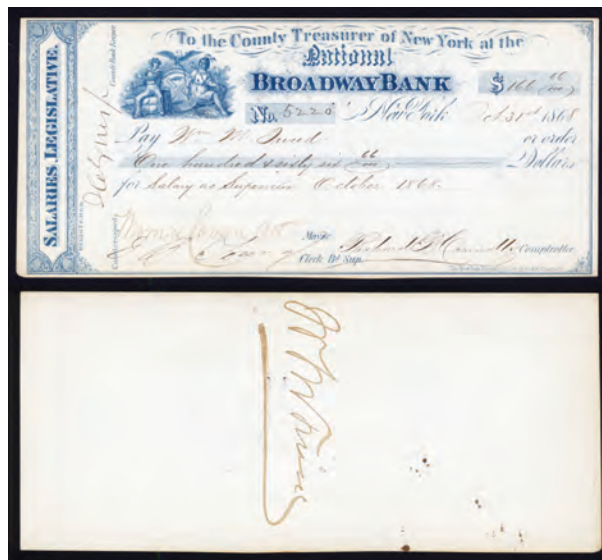 SALARIES, LEGISLATIVE.
To the County Treasurer of New York at the
National
BROADWAY BANK $166 66/100
No. 5220 New York Oct. 31st 1868
Pay Wm M. Tweed or order
One hundred sixty six 66/100 Dollars
for Salary as Supervisor October 1868.
Mayor
Clerk Bd Sup. Richard B Connolly Comptroller
Countersigned
Wm M Tweed